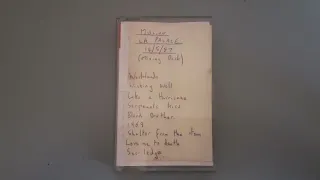 Mission
LA PALACE
16/5/87
(Missing Book)
Wastelands
Wishing Well
Like a Hurricane
Serpents Kiss
Blood Brother
1969
Shelter from the storm
Love me to death
Sacrilege